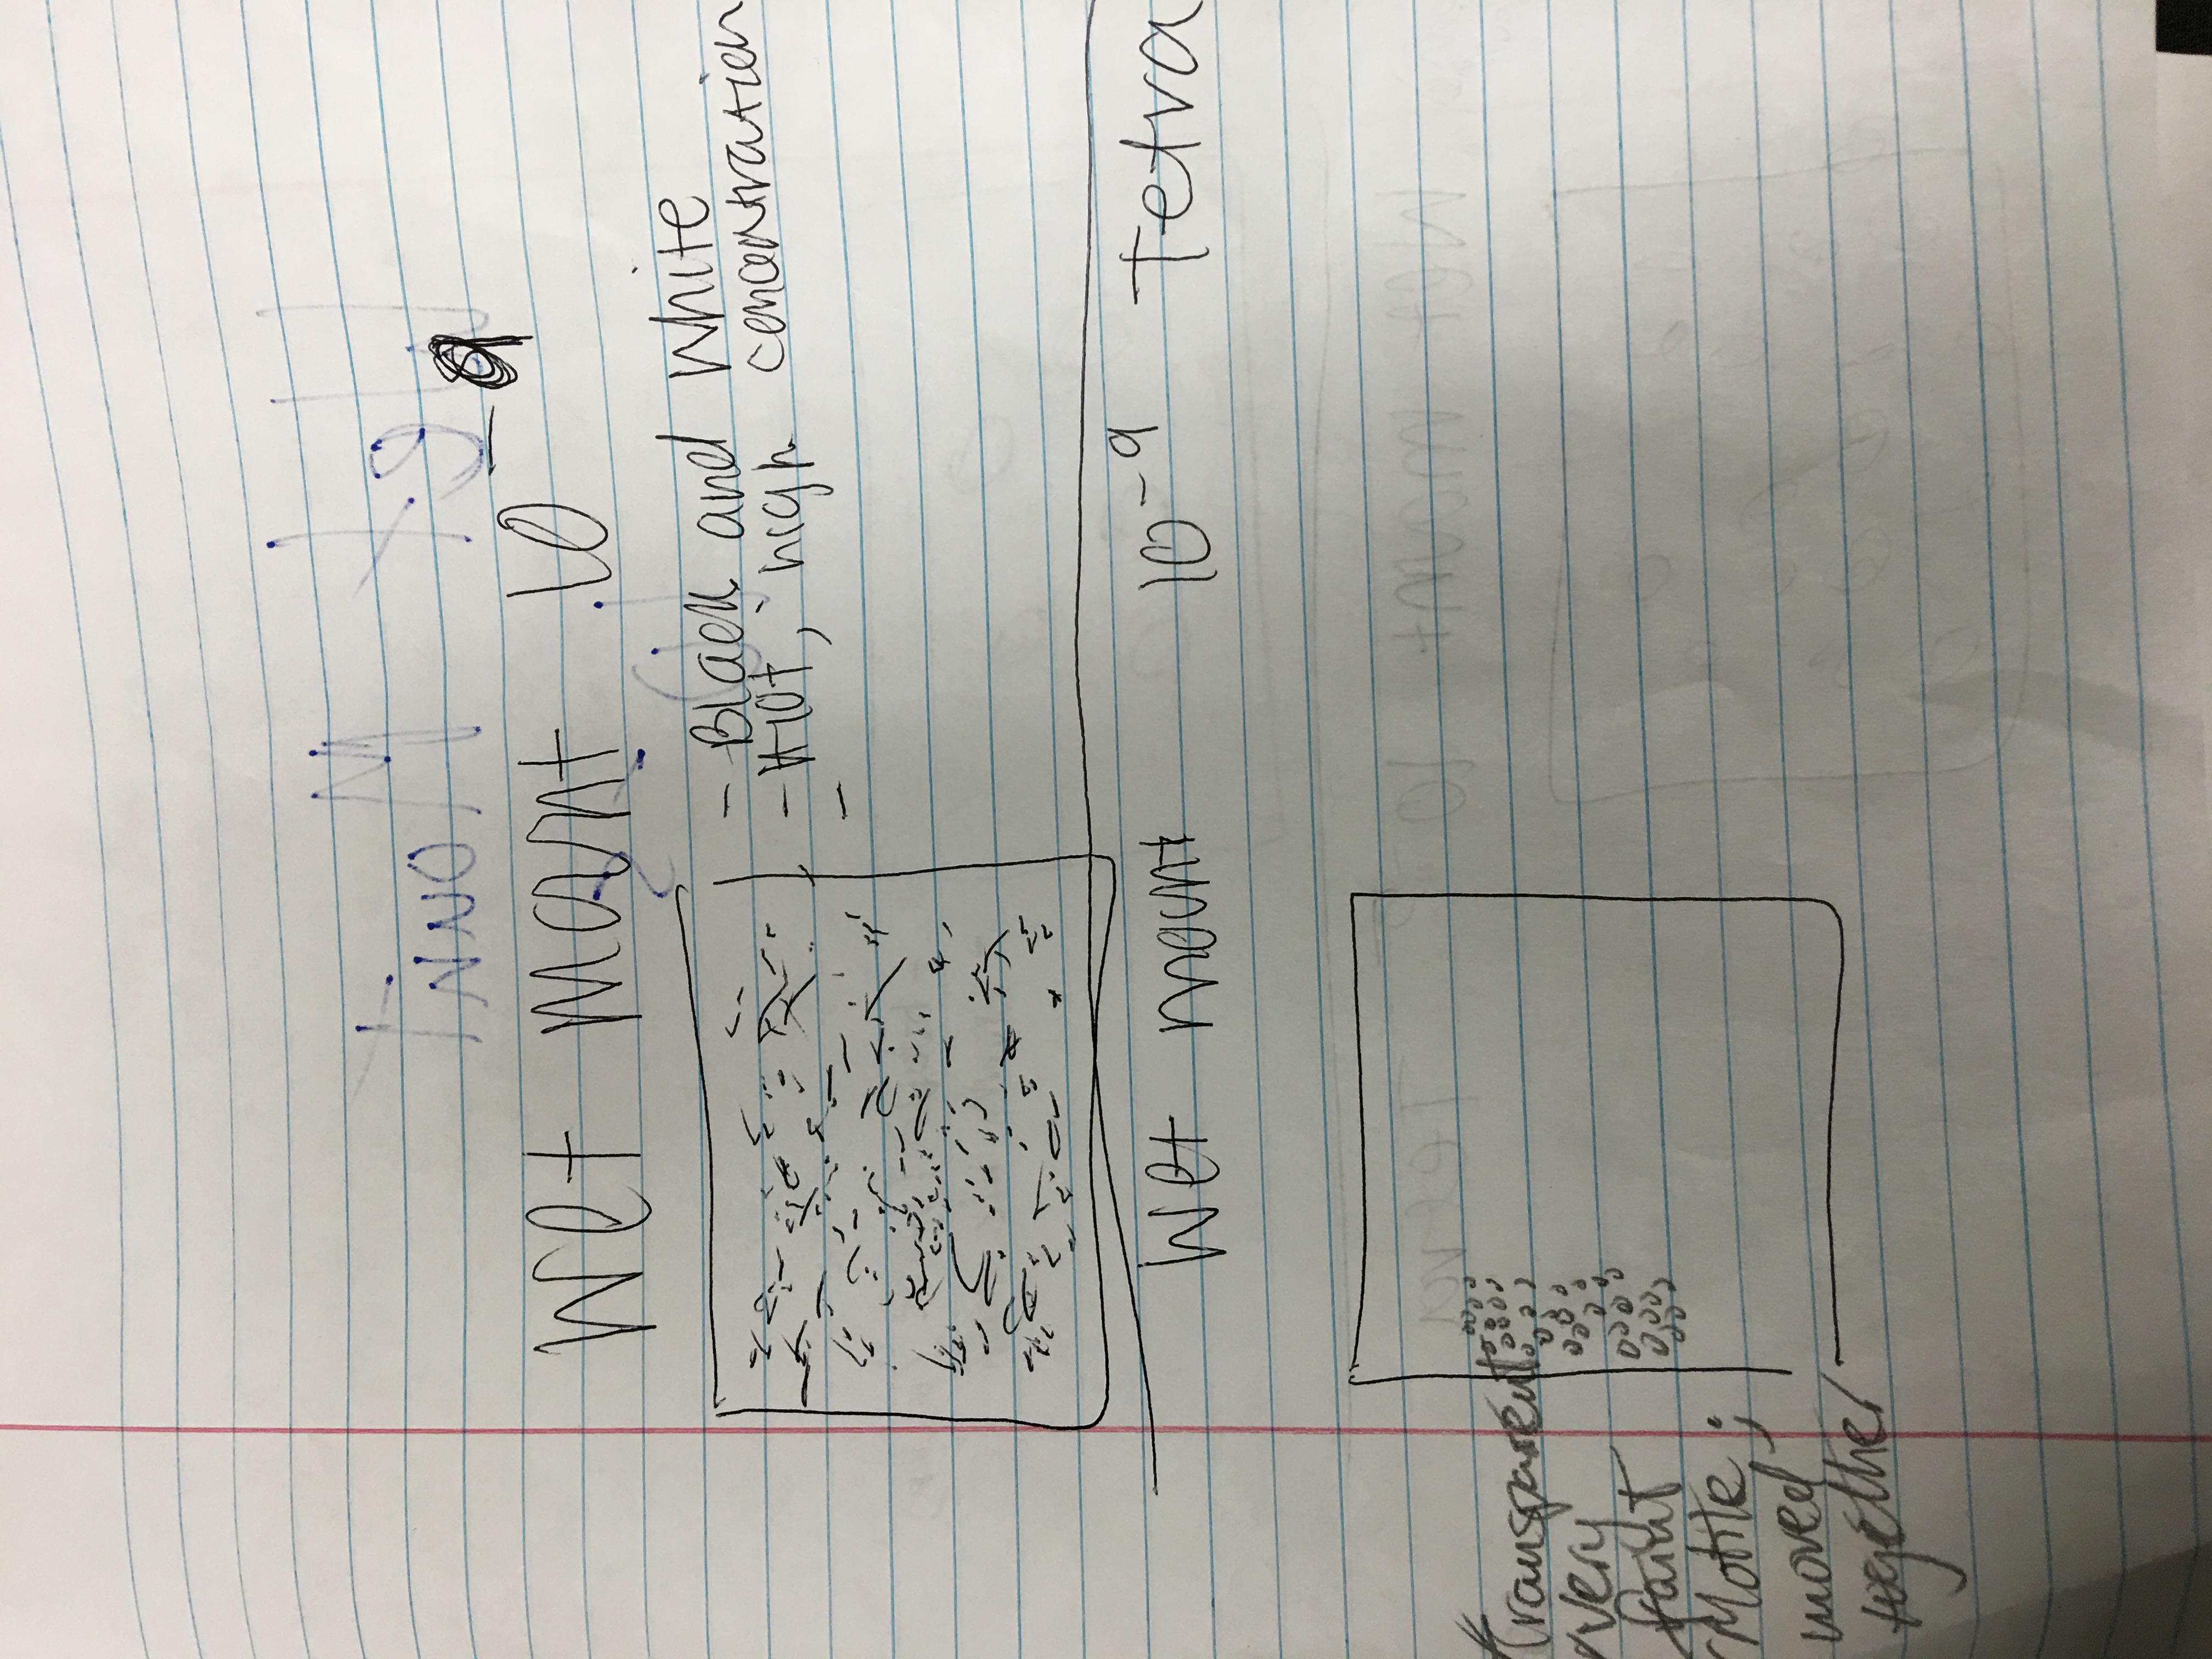 Wet Mount 10 -9
- Black and White
- #10t, high concentration
-
Wet mount 10-9 Tetra
transparent
very
faint
Motile;
moved
together